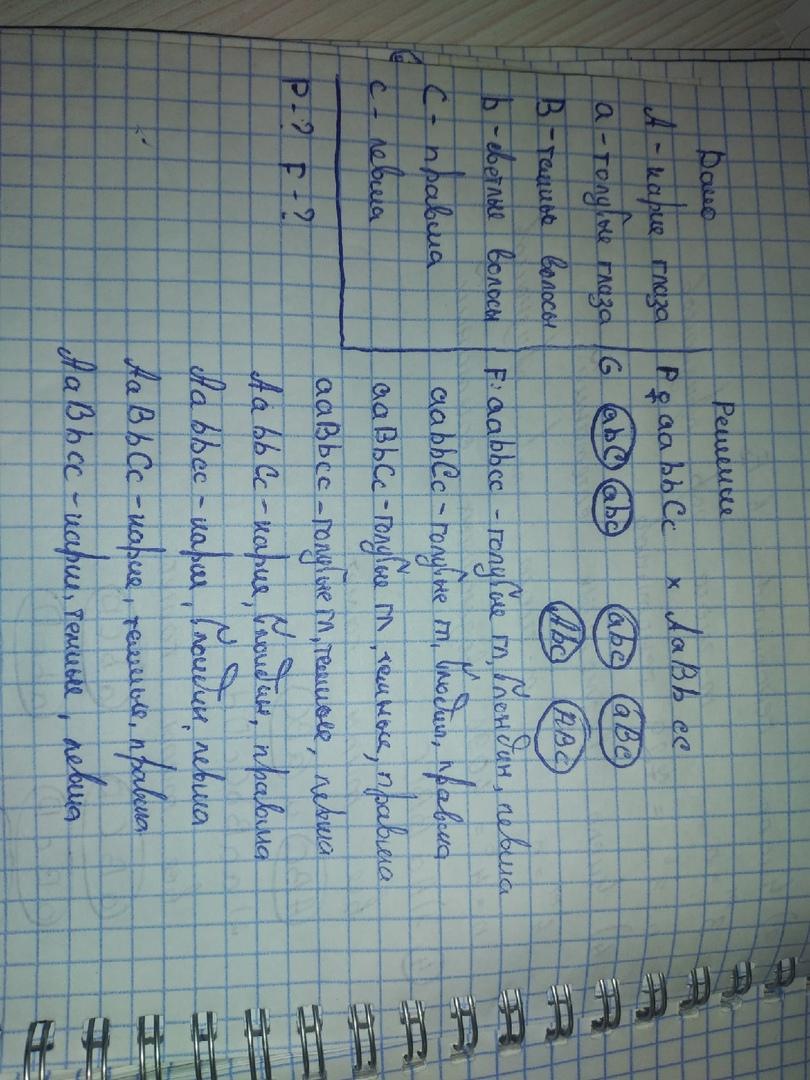 Дано
А - карие глаза
а - голубые глаза
В - темные волосы
b - светлые волосы
С - правша
с - левша
P - ? F - ?
Решение
P ♀ aabbCc x AaBbcc
G abC abc abc aBc
Abc ABc
F: aabbcc - голубые гл, блондин, левша
aabbCc - голубые гл, блондин, правша
aaBbCc - голубые гл, темные, правша
aaBbcc - голубые гл, темные, левша
AabbCc - карие, блондин, правша
Aabbcc - карие, блондин, левша
AaBbCc - карие, темные, правша
AaBbcc - карие, темные, левша